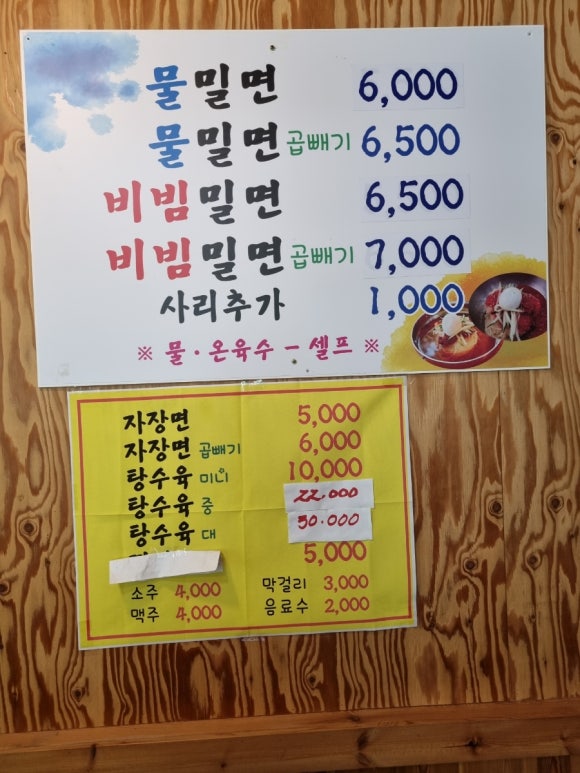 물밀면 6,000
물밀면 곱빼기 6,500
비빔밀면 6,500
비빔밀면 곱빼기 7,000
사리추가 1,000
※ 물·온육수-셀프 ※
자장면 5,000
자장면 곱빼기 6,000
탕수육 미니 10,000
탕수육 중 22.000
탕수육 대 30.000
5,000
소주 4,000 막걸리 3,000
맥주 4,000 음료수 2,000